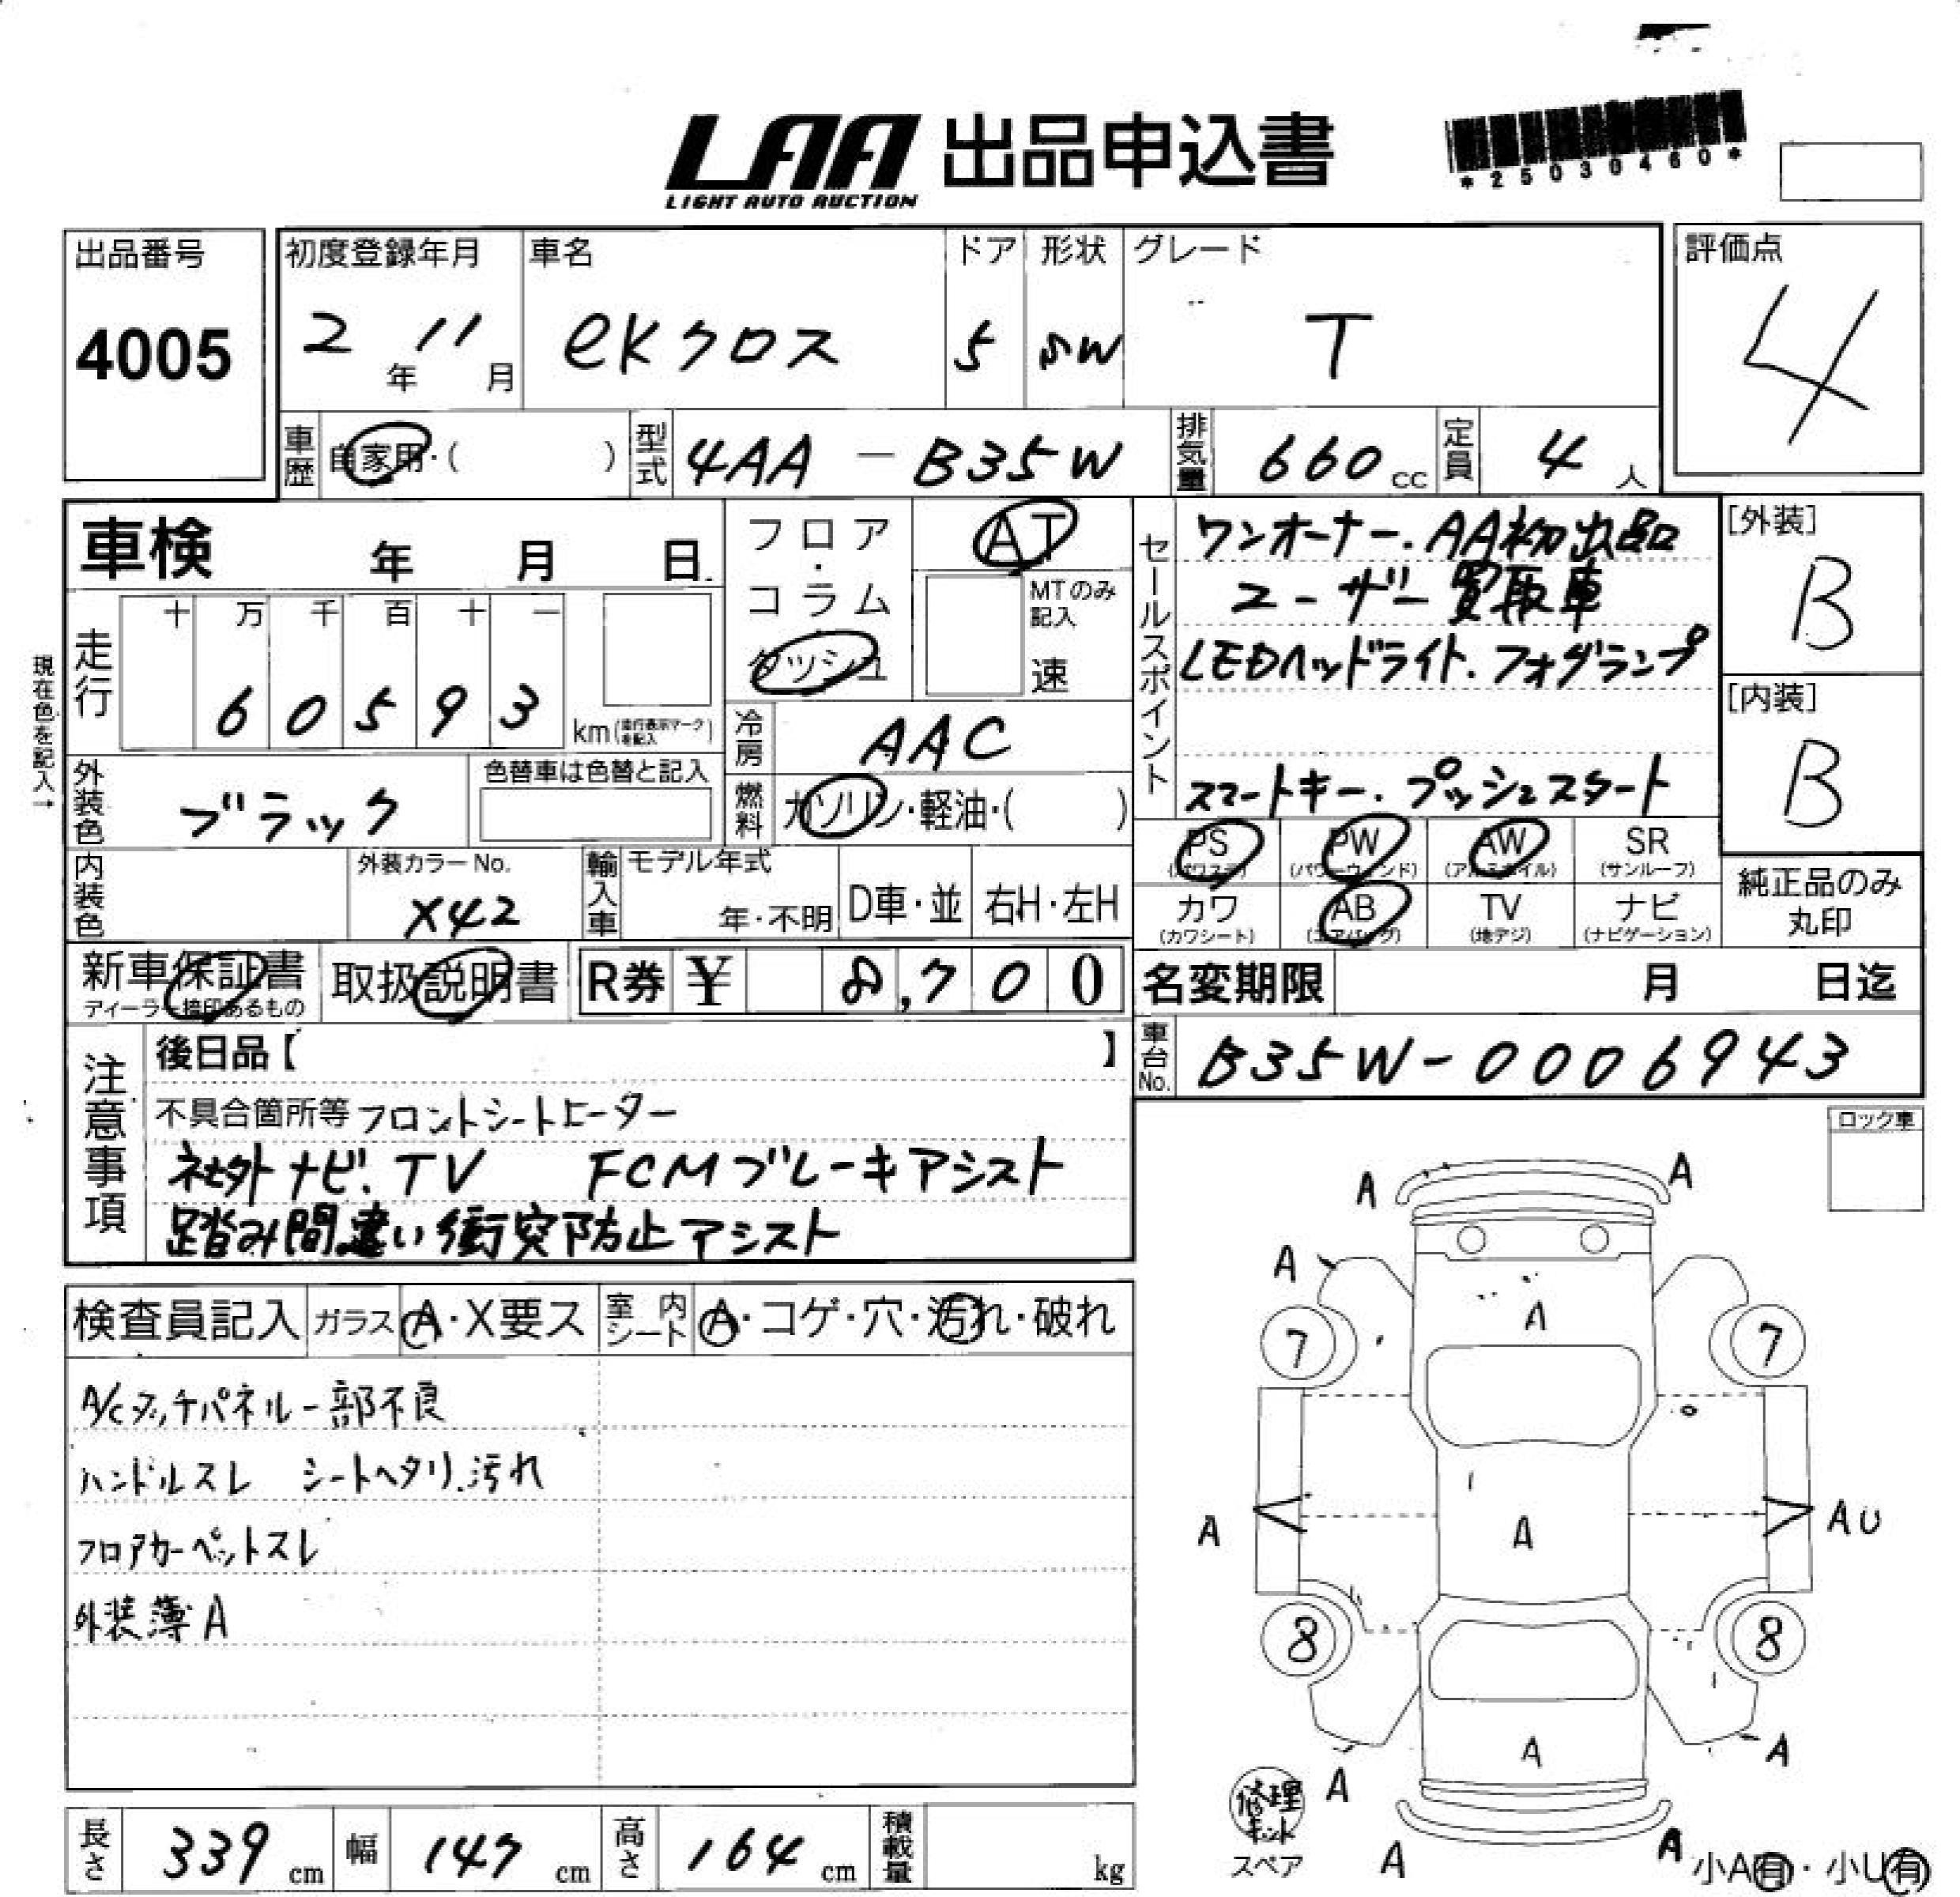 LAA 出品申込書
LIGHT AUTO AUCTION
*25030460*
出品番号
4005
初度登録年月
2年 11月
車名
eKクロス
ドア
5
形状
SW
グレード
T
評価点
4
車歴 自家用・( )
型式 4AA-B35W
排気量 660cc
定員 4人
車検 年 月 日
フロア・コラム ダッシュ
AT
MTのみ記入
速
セールスポイント
ワンオーナー.AA初出品
ユーザー買取車
LEDヘッドライト.フォグランプ
スマートキー.プッシュスタート
[外装]
B
[内装]
B
現在色を記入→
走行 十 万 千 百 十 一
60593
km(走行表示マークを記入)
冷房 AAC
燃料 ガソリン・軽油・( )
外装色 ブラック
色替車は色替と記入
内装色
外装カラーNo.
X42
輸入車 モデル年式
年・不明 D車・並 右H・左H
PS (パワステ) PW (パワーウィンド) AW (アルミホイル) SR (サンルーフ)
カワ (カワシート) AB (エアバッグ) TV (地デジ) ナビ (ナビゲーション)
純正品のみ丸印
新車保証書
ディーラー捺印あるもの
取扱説明書
R券 ¥ 8,700
名変期限 月 日迄
車台No. B35W-0006943
注意事項
後日品【 】
不具合箇所等 フロントシートヒーター
社外ナビ.TV FCMブレーキアシスト
踏み間違い衝突防止アシスト
ロック車
検査員記入 ガラス A・X要ス 室内シート A・コゲ・穴・汚れ・破れ
A/Cタッチパネル一部不良
ハンドルスレ シートヘタリ.汚れ
フロアカーペットスレ
外装薄A
A A
A
A
7 7
A A AU
8 8
A A
A
A A
修理キット
スペア
小A有・小U有
長さ 339cm
幅 147cm
高さ 164cm
積載量 kg